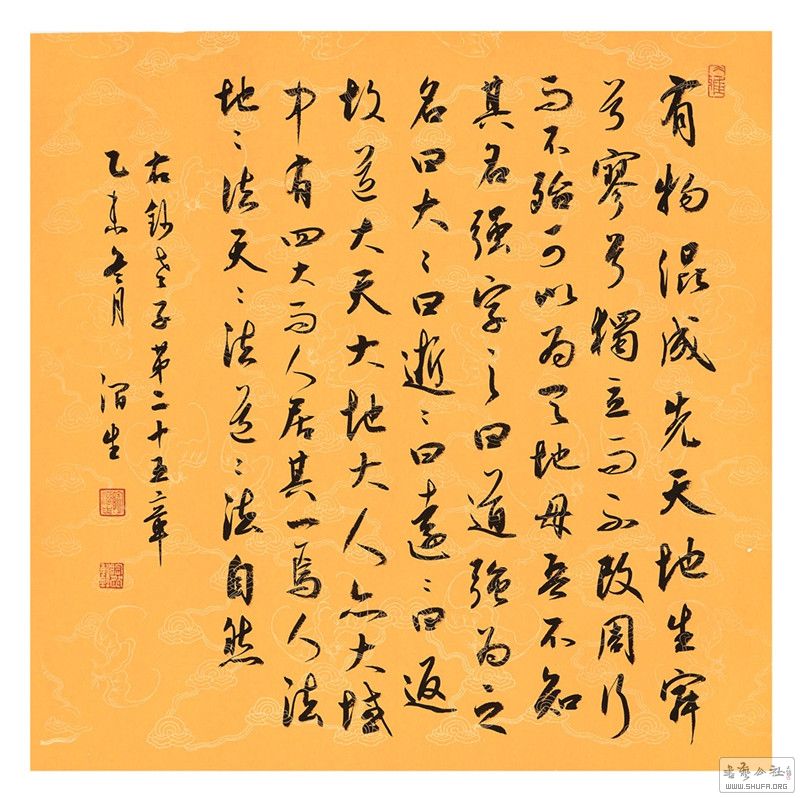 有物混成先天地生寂
兮寥兮獨立而不改周行
而不殆可以為天地母吾不知
其名强字之曰道强為之
名曰大〻曰逝〻曰遠〻曰返
故道大天大地大人亦大域
中有四大而人居其一焉人法
地〻法天〻法道〻法自然
右鈔老子第二十五章
乙未冬月 涓生
書藝公社
WWW.SHUFA.ORG